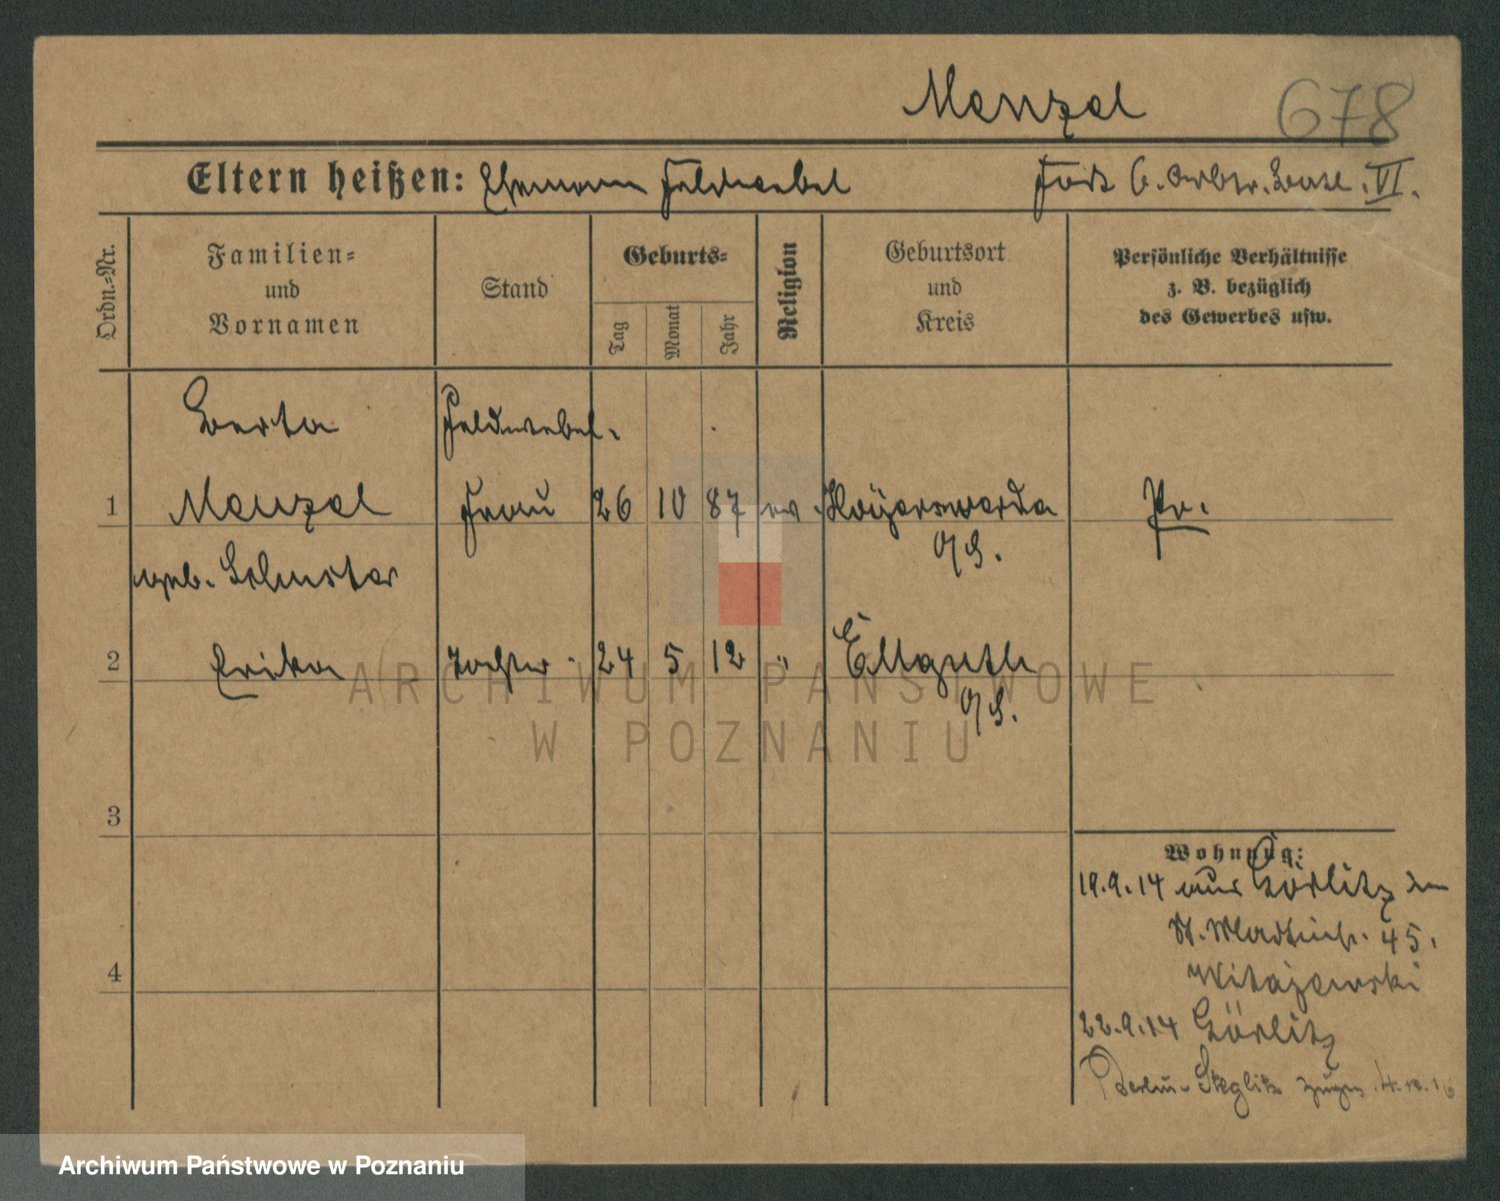 Menzel 678
Eltern heißen: Ehemann Feldwebel Fort
VI.
Ordn.-Nr.
Familien-
und
Vornamen
Stand
Geburts-
Tag
Monat
Jahr
Religion
Geburtsort
und
Kreis
Persönliche Verhältnisse
z. B. bezüglich
des Gewerbes usw.
Berta Feldwebel-
1 Menzel Frau 26 10 87 ev. Hoyerswerda Pr.
geb. O/S.
2 Erika Tochter 24 5 12 " Ellguth
O/S.
3
4
Wohnung:
19.9.14 aus Görlitz
St. Martinstr. 45.
Witajewski
22.9.14 Görlitz
Berlin-Steglitz
ARCHIWUM PAŃSTWOWE
W POZNANIU
Archiwum Państwowe w Poznaniu